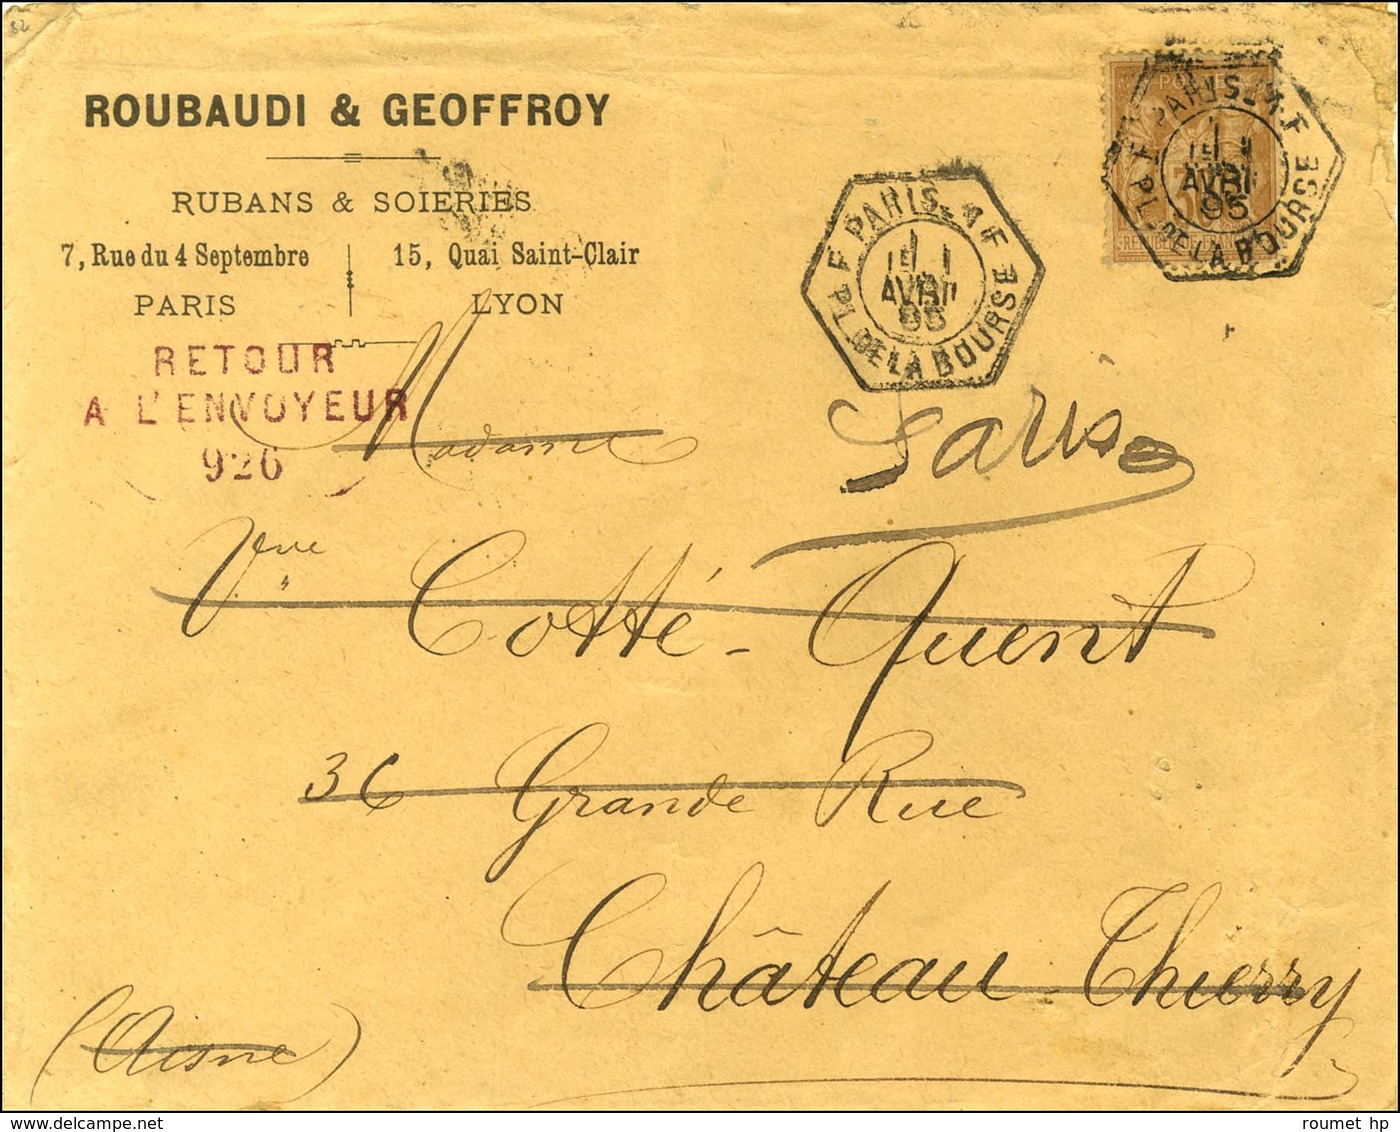 ROUBAUDI & GEOFFROY
RUBANS & SOIERIES
7, Rue du 4 Septembre
PARIS
15, Quai Saint-Clair
LYON
RETOUR
A L'ENVOYEUR
926
PARIS
AVRIL
95
PL. DE LA BOURSE
PARIS
AVRIL
95
PL. DE LA BOURSE
Paris
Madame
Vve Cotté-Quent
36 Grande Rue
Château-Thierry
(Aisne)
roumet hp